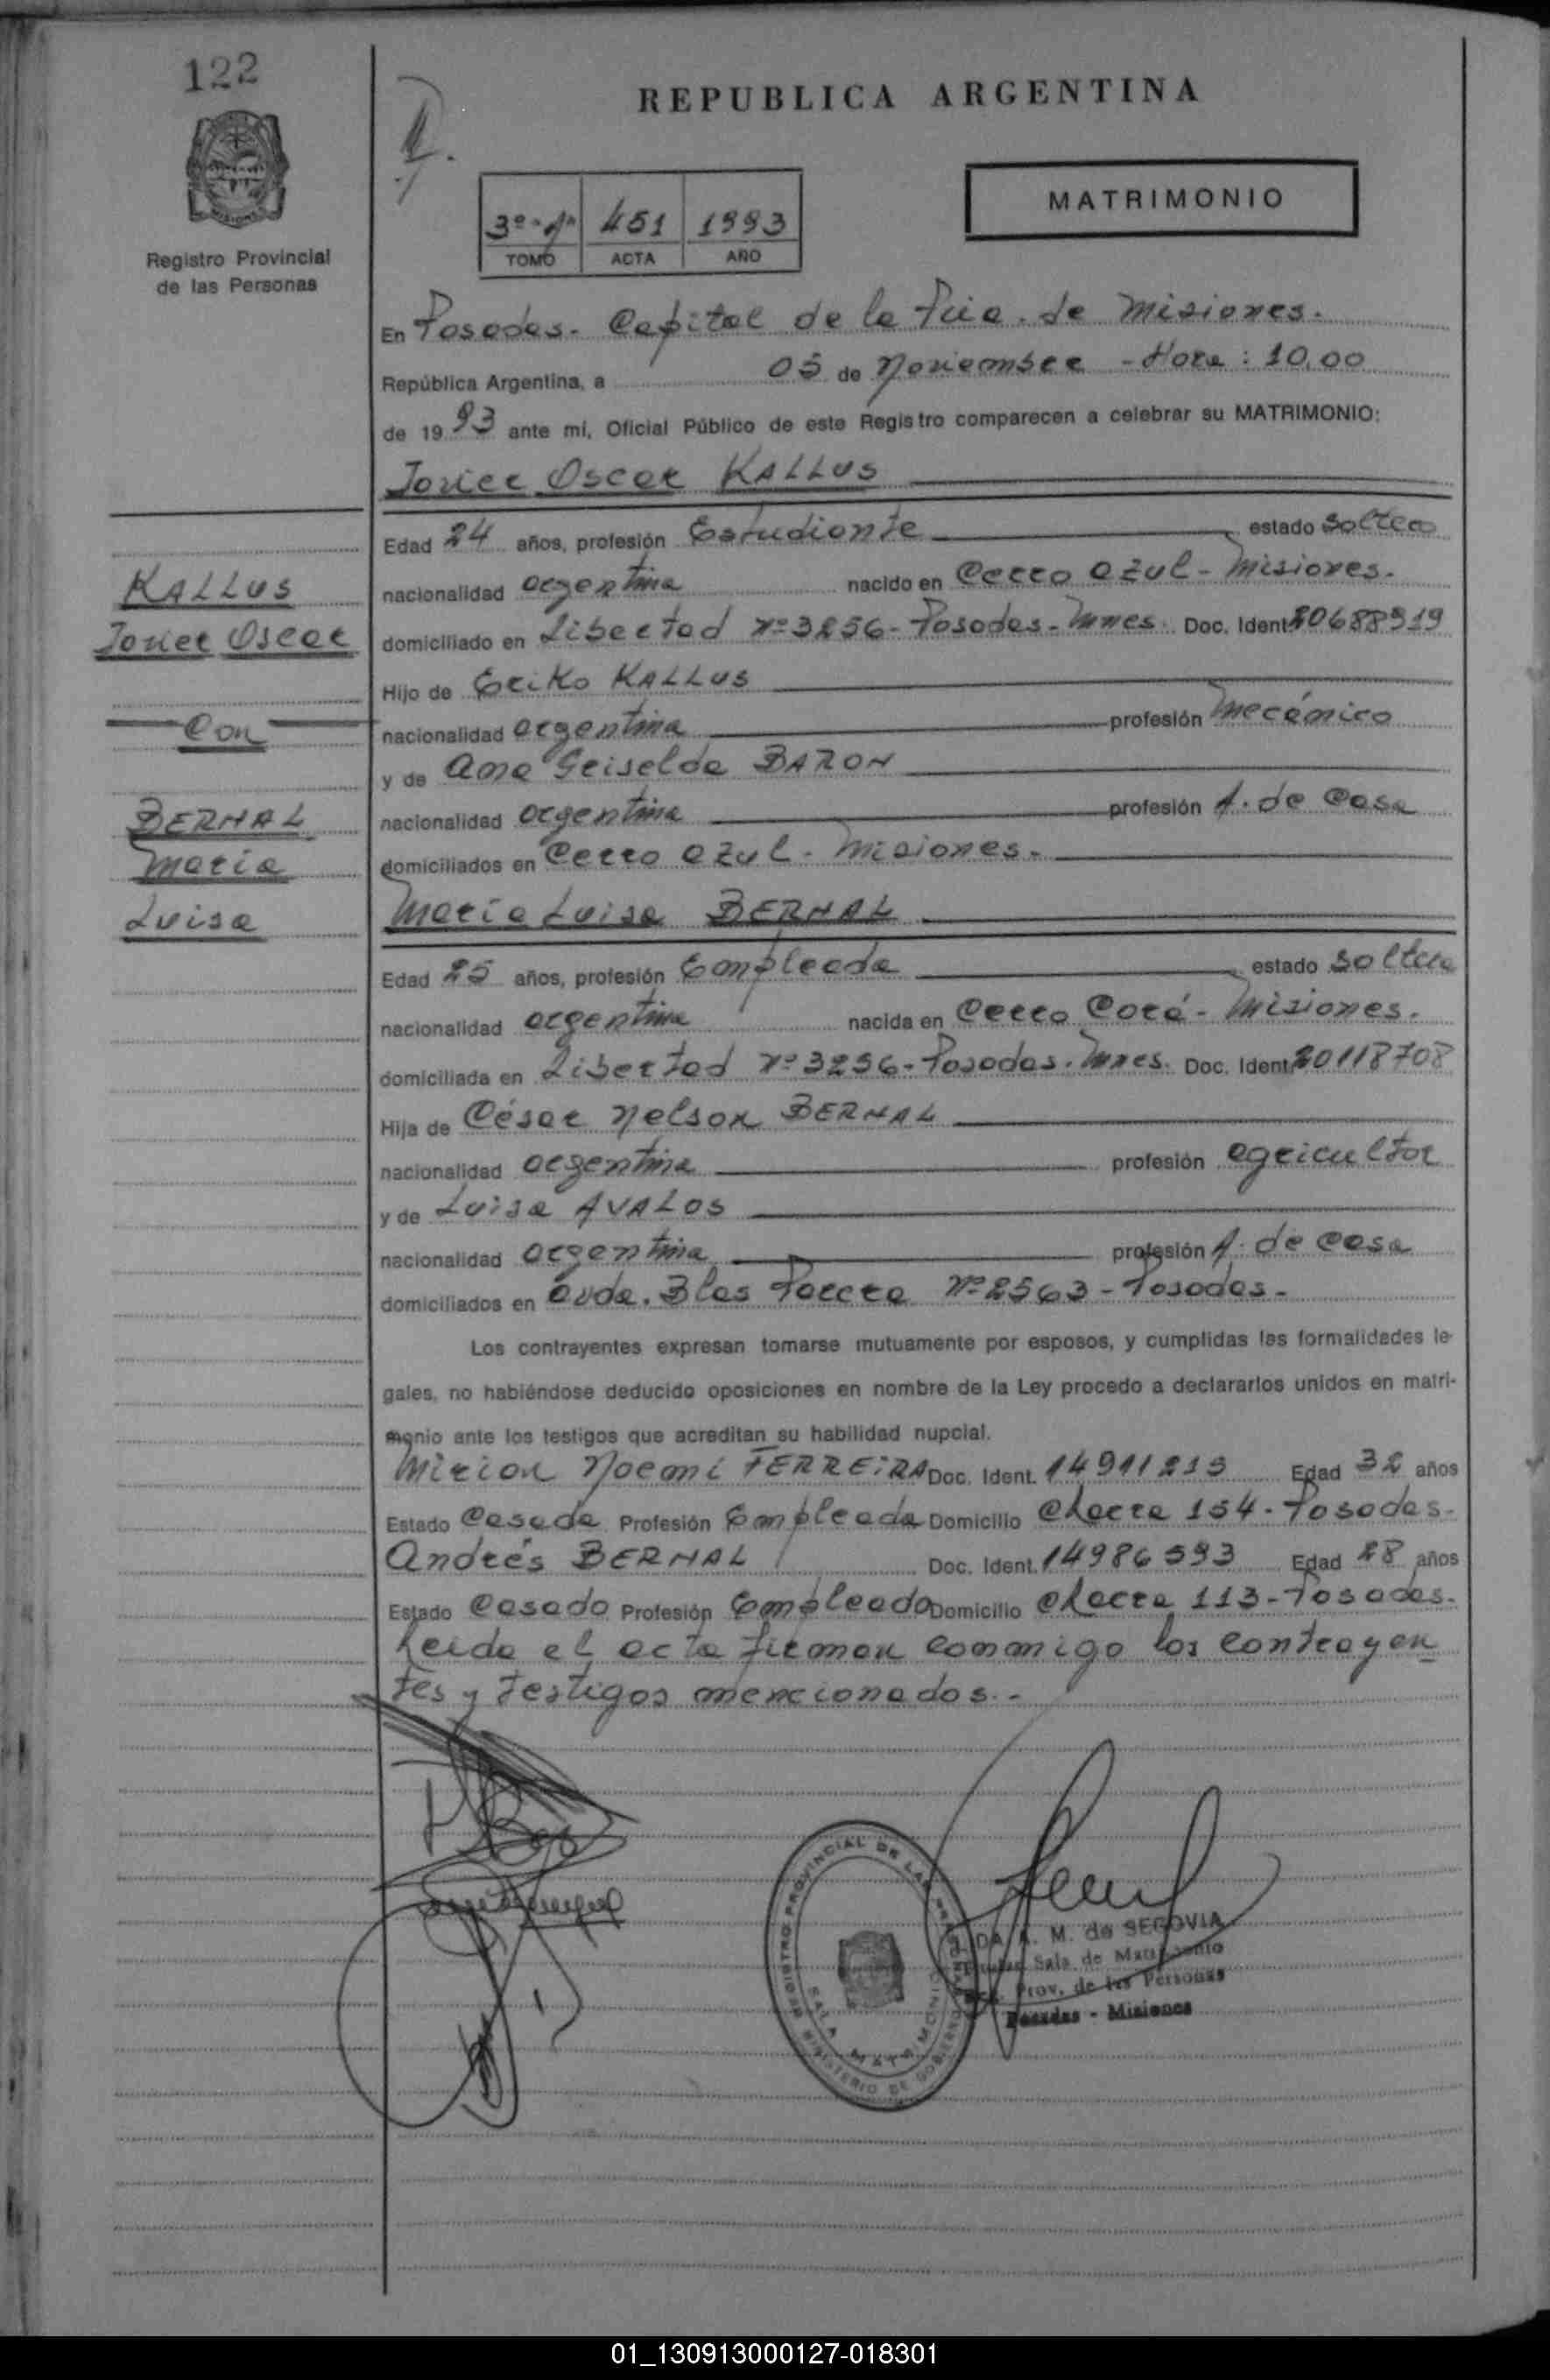 122
REPUBLICA ARGENTINA
MATRIMONIO
3º-Aº 451 1993
TOMO ACTA AÑO
Registro Provincial
de las Personas
En Posadas. Capital de la Pcia. de Misiones.
República Argentina, a 05 de Noviembre - Hora: 10,00
de 1993 ante mi, Oficial Público de este Registro comparecen a celebrar su MATRIMONIO:
Javier Oscar KALLUS
Edad 24 años, profesión Estudiante estado Soltero
KALLUS
nacionalidad argentina nacido en Cerro Azul - Misiones.
Javier Oscar
domiciliado en Libertad Nº 3256 - Posadas - Mnes. Doc. Ident. 20688919
Hijo de Eriko KALLUS
Con
nacionalidad argentina profesión Mecánico
y de Ana Griselda BARON
BERNAL
nacionalidad argentina profesión A. de Casa
María
domiciliados en Cerro Azul - Misiones.
Luisa
María Luisa BERNAL
Edad 25 años, profesión Empleada estado Soltera
nacionalidad argentina nacida en Cerro Corá - Misiones.
domiciliada en Libertad Nº 3256 - Posadas. Mnes. Doc. Ident. 20118708
Hija de César Nelson BERNAL
nacionalidad argentina profesión agricultor
y de Luisa AVALOS
nacionalidad argentina profesión A. de Casa
domiciliados en Avda. Blas Parera Nº 2563 - Posadas.
Los contrayentes expresan tomarse mutuamente por esposos, y cumplidas las formalidades le-
gales, no habiéndose deducido oposiciones en nombre de la Ley procedo a declararlos unidos en matri-
monio ante los testigos que acreditan su habilidad nupcial.
Mirian Noemí FERREIRA Doc. Ident. 14911213 Edad 32 años
Estado Casada Profesión Empleada Domicilio Chacra 154 - Posadas.
Andrés BERNAL Doc. Ident. 14986593 Edad 28 años
Estado Casado Profesión Empleado Domicilio Chacra 113 - Posadas.
Leida el acta firman conmigo los contrayen
tes y testigos mencionados.-
REGISTRO PROVINCIAL DE LAS PERSONAS
SALA MATRIMONIO
MINISTERIO DE GOBIERNO
A. M. de SEGOVIA
Sala de Matrimonio
Prov. de las Personas
Posadas - Misiones
01_130913000127-018301